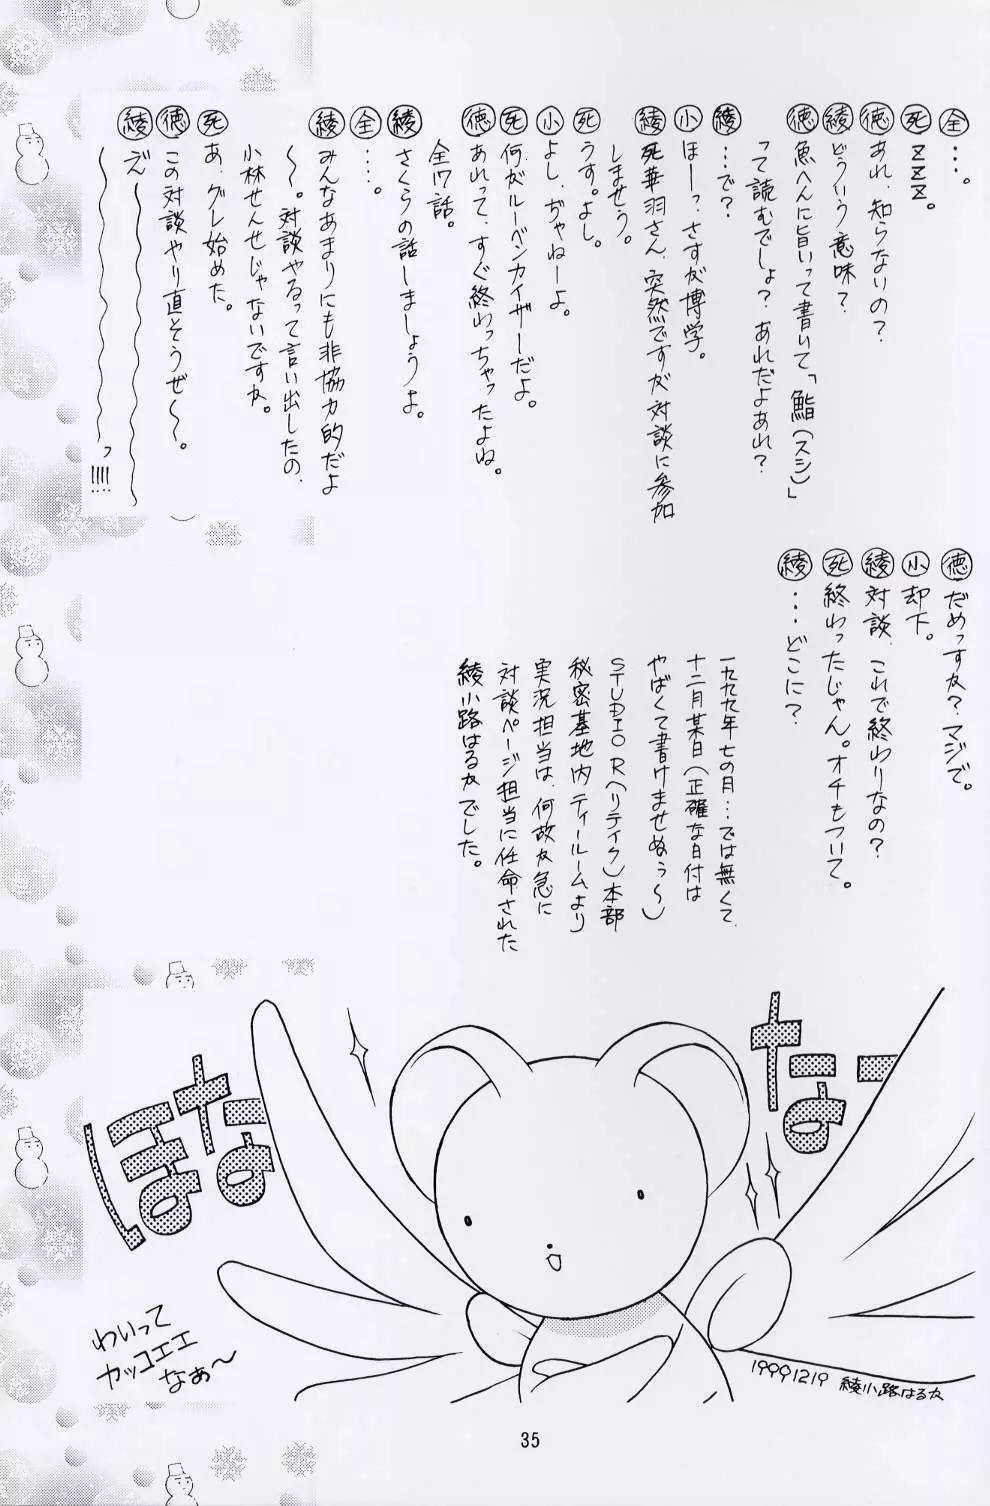 全…。
死ZZZ。
徳あれ、知らないの？
綾どういう意味？
徳魚へんに旨いって書いて「鮨(スシ)」
って読むでしょ？あれだよあれ？
綾…で？
小ほーっ、さすが博学。
綾死華羽さん、突然ですが対談に参加
しませう。
死うす。よし。
小よし、ぢゃねーよ。
死何がルーベンカイザーだよ。
徳あれって、すぐ終わっちゃったよね。
全17話。
綾さくらの話しましょうよ。
全…。
綾みんなあまりにも非協力的だよ
〜。対談やるって言い出したの、
小林せんせじゃないですか。
死あ、グレ始めた。
徳この対談やり直そうぜ〜。
綾
っ!!!!
徳だめっすか？マジで。
小却下。
綾対談、これで終わりなの？
死終わったじゃん。オチもついて。
綾…どこに？
一九九九年七の月…では無くて、
十二月某日(正確な日付は
やばくて書けませぬぅ〜)
STUDIO R(リテイク)本部
秘密基地内ティールームより
実況担当は、何故か急に
対談ページ担当に任命された
綾小路はるかでした。
ほなな一
わいって
カッコエエ
なぁ〜
19991219 綾小路はるか
35